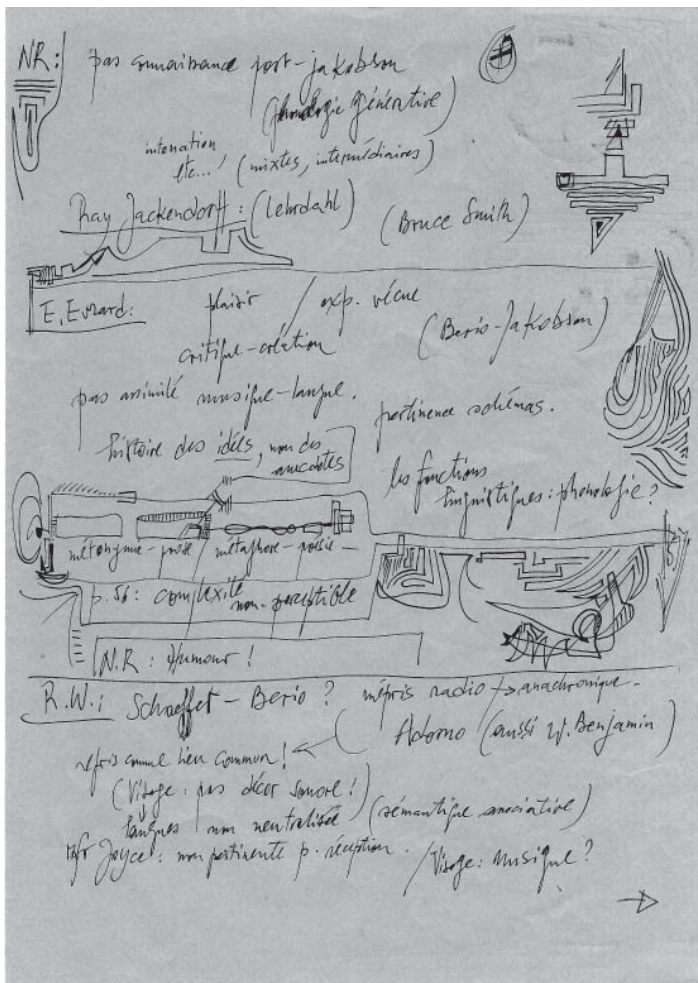 NR: pas connaissance post-jakobson
(phonologie générative)
intonation
etc..., (mixtes, intermédiaires)
Ray Jackendorff: (Lehrdahl)
(Bruce Smith)
E. Evrard: plaisir / exp. vécue
critique-création
(Berio-Jakobson)
pas assimilé musique-langue.
pertinence schémas.
histoire des idées, non des
anecdotes
les fonctions
linguistiques: phonologie?
métonymie-prose / métaphore-poésie-
p. 56: complexité
non-perceptible
N.R: Humour!
R.W.: Schaeffer-Berio? mépris radio → anachronique.
Adorno (aussi W. Benjamin)
repris comme lieu commun!
(Visage: pas décor sonore!)
langues non neutralisée (sémantique associative)
Joyce: non pertinente p. réception. / Visage: musique?